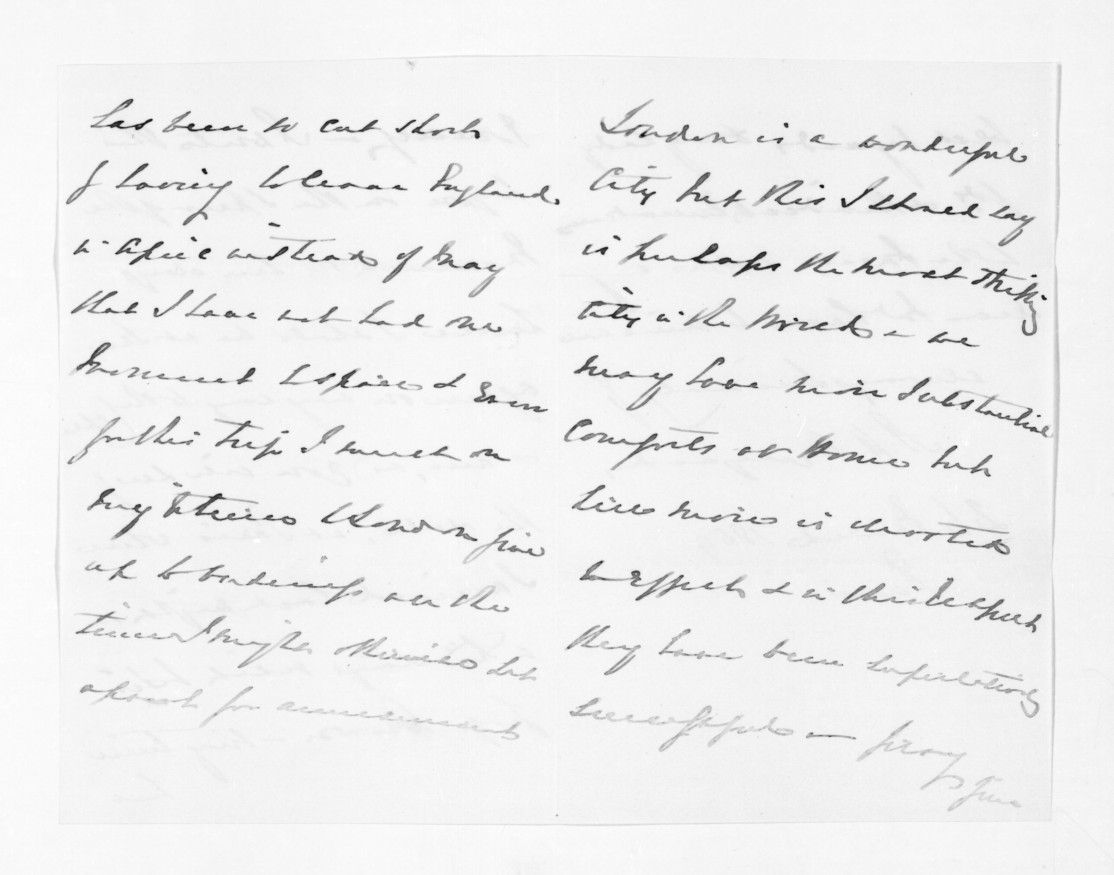 has been so cut short
by having to leave England
in April instead of May
that I have not had one
moment to spare & even
for this trip I must on
my return to London give
up to business all the
time I might otherwise set
apart for amusement
London is a wonderful
City but this I should say
is perhaps the most striking
City in the World - we
may have more substantial
comforts at Home but
here more is devoted
to Effect & in this respect
they have been superlatively
successful - pray
give